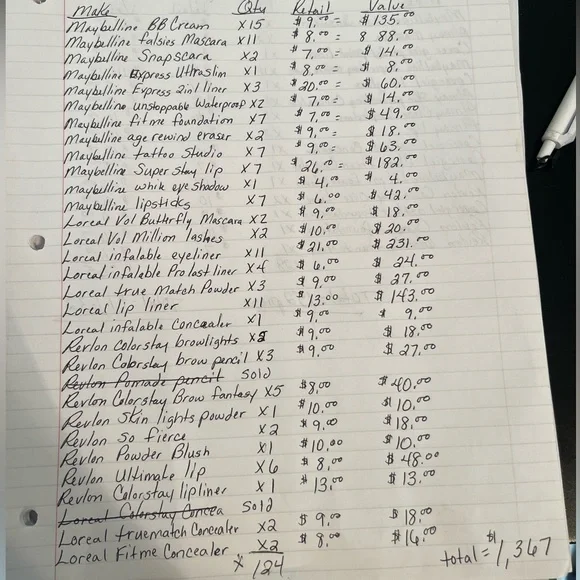 Make Qty Retail Value
Maybelline BB Cream X15 $9.00 = $135.00
Maybelline falsies Mascara X11 $8.00 = $88.00
Maybelline Snapscara X2 $7.00 = $14.00
Maybelline Express Ultraslim X1 $8.00 = $8.00
Maybelline Express 2in1 liner X3 $20.00 = $60.00
Maybelline unstoppable Waterproof X2 $7.00 = $14.00
Maybelline fit me foundation X7 $7.00 = $49.00
Maybelline age rewind eraser X2 $9.00 = $18.00
Maybelline tattoo Studio X7 $9.00 = $63.00
Maybelline Super Stay lip X7 $26.00 = $182.00
Maybelline while eye shadow X1 $4.00 $4.00
Maybelline lipsticks X7 $6.00 $42.00
Loreal Vol Butterfly Mascara X2 $9.00 $18.00
Loreal Vol Million lashes X2 $10.00 $20.00
Loreal infalable eyeliner X11 $21.00 $231.00
Loreal infaleble Pro last liner X4 $6.00 $24.00
Loreal true Match Powder X3 $9.00 $27.00
Loreal lip liner X11 $13.00 $143.00
Loreal infalable Concealer X1 $9.00 $9.00
Revlon Colorstay browlights X2 $9.00 $18.00
Revlon Colorstay brow pencil X3 $9.00 $27.00
Revlon Pomade pencil Sold
Revlon Colorstay Brow fantasy X5 $8.00 $40.00
Revlon Skin lights powder X1 $10.00 $10.00
Revlon So fierce X2 $9.00 $18.00
Revlon Powder Blush X1 $10.00 $10.00
Revlon Ultimate lip X6 $8.00 $48.00
Revlon Colorstay lipliner X1 $13.00 $13.00
Loreal Colorstay Concea Sold
Loreal truematch Concealer X2 $9.00 $18.00
Loreal Fitme Concealer X2 $8.00 $16.00
X 124. total = $1,367